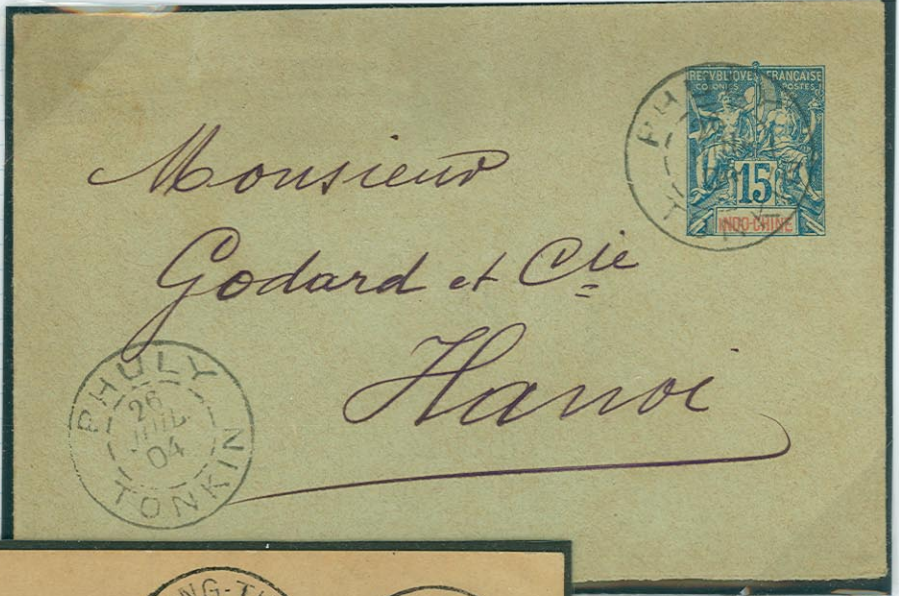 REPUBLIQUE FRANÇAISE
COLONIES POSTES
15
INDO-CHINE
Monsieur
Godard et Cie
Hanoi
PHULY
26
JUIL
04
TONKIN